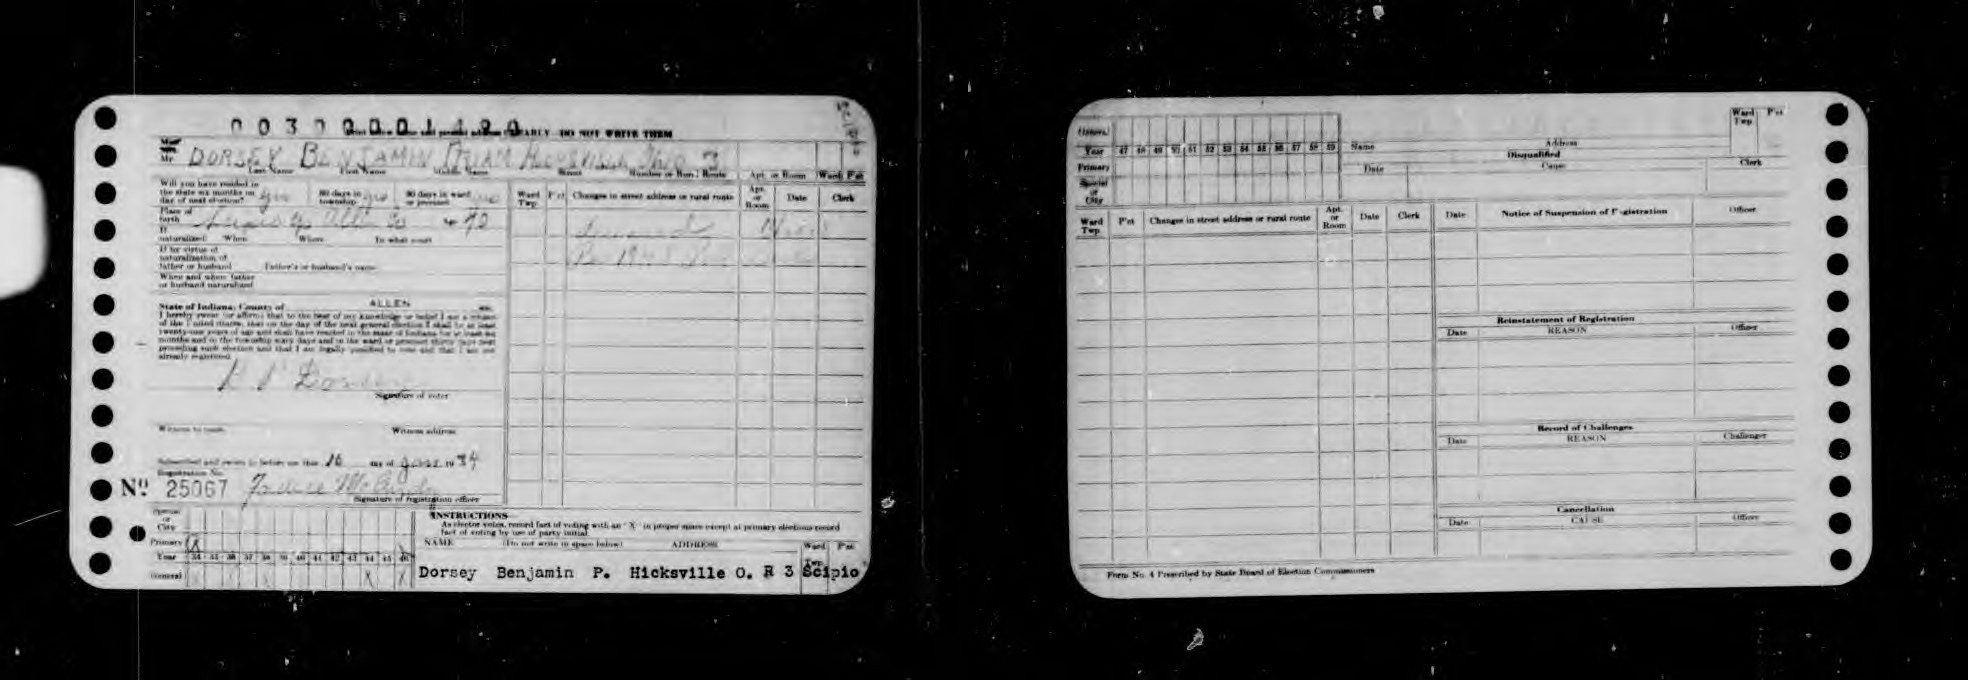 DO NOT WRITE THEM
Mr. DORSEY BENJAMIN PRIAM HICKSVILLE OHIO 3
Last Name First Name Middle Name Street Number or Rural Route Apt. or Room Ward Pct
Will you have resided in the state six months on day of next election? yes 60 days in township yes 90 days in ward or precinct yes
Place of birth
If naturalized: When Where In what court
If by virtue of naturalization of father or husband Father's or husband's name
When and where father or husband naturalized
State of Indiana, County of ALLEN ss.
I hereby swear (or affirm) that to the best of my knowledge or belief I am a citizen
of the United States, that on the day of the next general election I shall be at least
twenty-one years of age and shall have resided in the state of Indiana for at least six
months and in the township sixty days and in the ward or precinct thirty days next
preceding such election and that I am legally qualified to vote and that I am not
already registered.
B P Dorsey
Signature of voter
Witness to mark Witness address
Subscribed and sworn to before me this 16 day of 19 34
Registration No.
No 25067
Signature of registration officer
Ward Twp. P'ct Changes in street address or rural route Apt. or Room Date Clerk
Special or City
Primary X
Year 34 35 36 37 38 39 40 41 42 43 44 45 46
General
INSTRUCTIONS
As elector votes, record fact of voting with an "X" in proper space except at primary elections record
fact of voting by use of party initial.
NAME (Do not write in space below) ADDRESS Ward Twp. P'ct
Dorsey Benjamin P. Hicksville O. R 3 Scipio
General
Year 47 48 49 50 51 52 53 54 55 56 57 58 59
Primary
Special or City
Name Address Ward Twp P'ct
Disqualified
Date Cause Clerk
Ward Twp. P'ct Changes in street address or rural route Apt. or Room Date Clerk
Date Notice of Suspension of Registration Officer
Reinstatement of Registration
Date REASON Officer
Record of Challenges
Date REASON Challenger
Cancellation
Date CAUSE Officer
Form No. 4 Prescribed by State Board of Election Commissioners